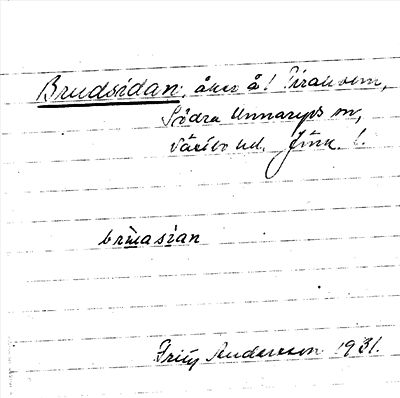 Brudsidan, åker å! Piraholm,
Södra Unnaryds sn,
Västbo hd. Jönk. l.
brusasian
Fritz Andersson 1931.